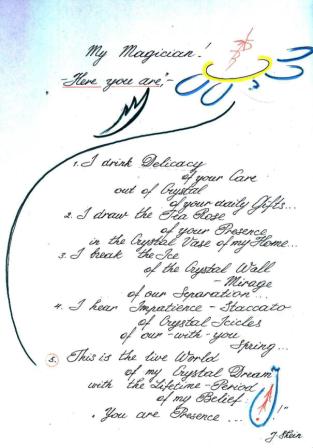 My Magician!
"-Here you are",-
1. I drink Delicacy
of your Care
out of Crystal
of your daily Gifts...
2. I draw the Tea Rose
of your Presence
in the Crystal Vase of my Home...
3. I break the Ice
of the Crystal Wall
- Mirage
of our Separation...
4. I hear Impatience - Staccato
of Crystal Icicles
of our-with-you
Spring...
5. This is the live World
of my Crystal Dream
with the Lifetime-Period
of my Belief:
"You are Presence ... !"
J. Shein